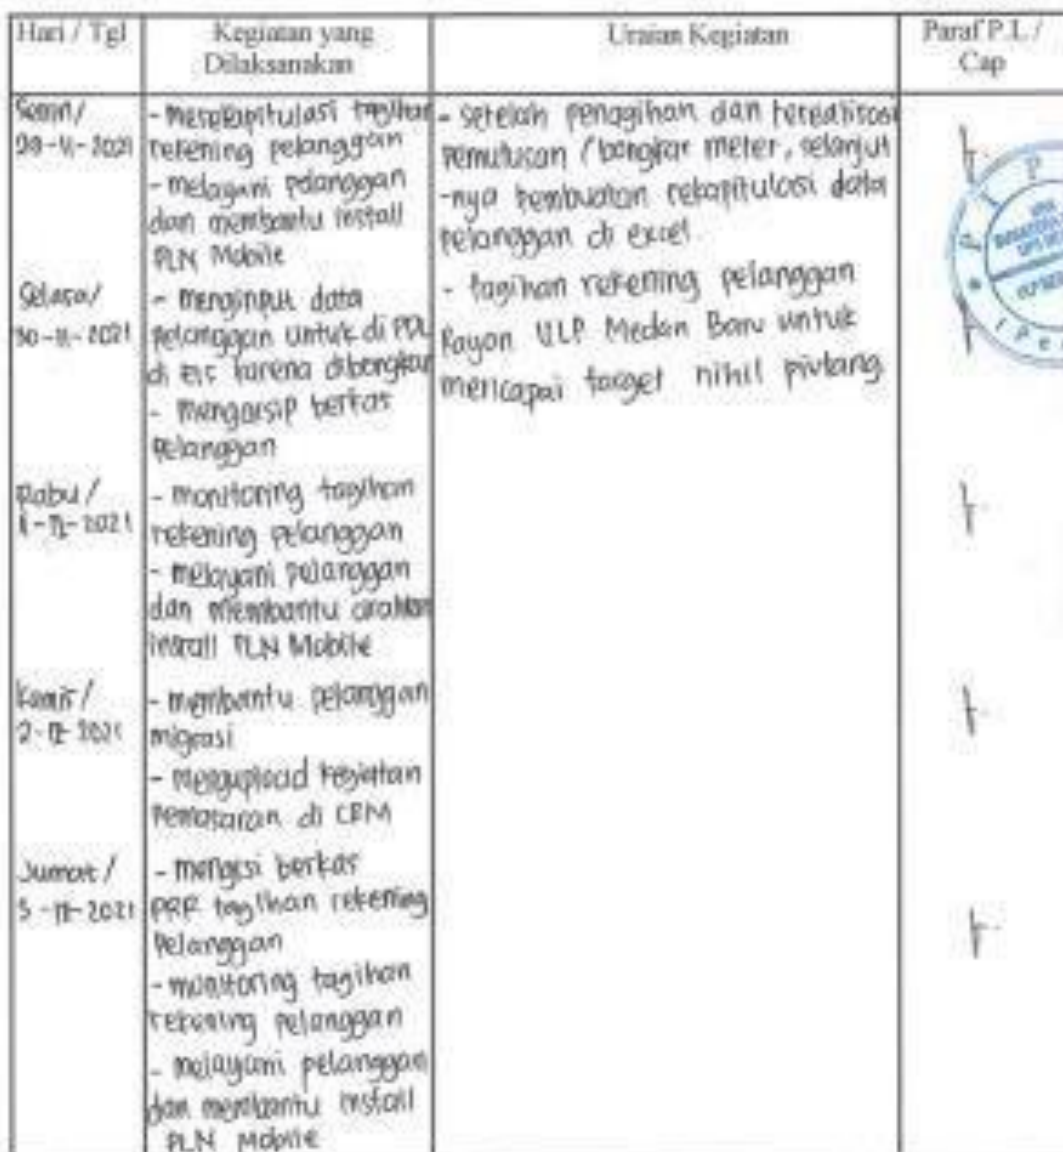 Hari / Tgl
Kegiatan yang
Dilaksanakan
Uraian Kegiatan
Paraf P.L /
Cap
Senin/
29-11-2021
- merekapitulasi tagihan
rekening pelanggan
- melayani pelanggan
dan membantu install
PLN Mobile
- setelah penagihan dan terealisasi
pemutusan / bongkar meter, selanjut
-nya pembuatan rekapitulasi data
pelanggan di excel
Selasa/
30-11-2021
- menginput data
pelanggan untuk di PDL
di karena dibongkar
- mengarsip berkas
pelanggan
- tagihan rekening pelanggan
Rayon ULP Medan Baru untuk
mencapai target nihil piutang
Rabu /
1-12-2021
- monitoring tagihan
rekening pelanggan
- melayani pelanggan
dan membantu arahan
install PLN Mobile
Kamis /
2-12-2021
- membantu pelanggan
migrasi
- mengupload kegiatan
pemasaran di CRM
Jumat /
-12-2021
- mengisi berkas
PRR tagihan rekening
pelanggan
- monitoring tagihan
rekening pelanggan
- melayani pelanggan
dan membantu install
PLN Mobile